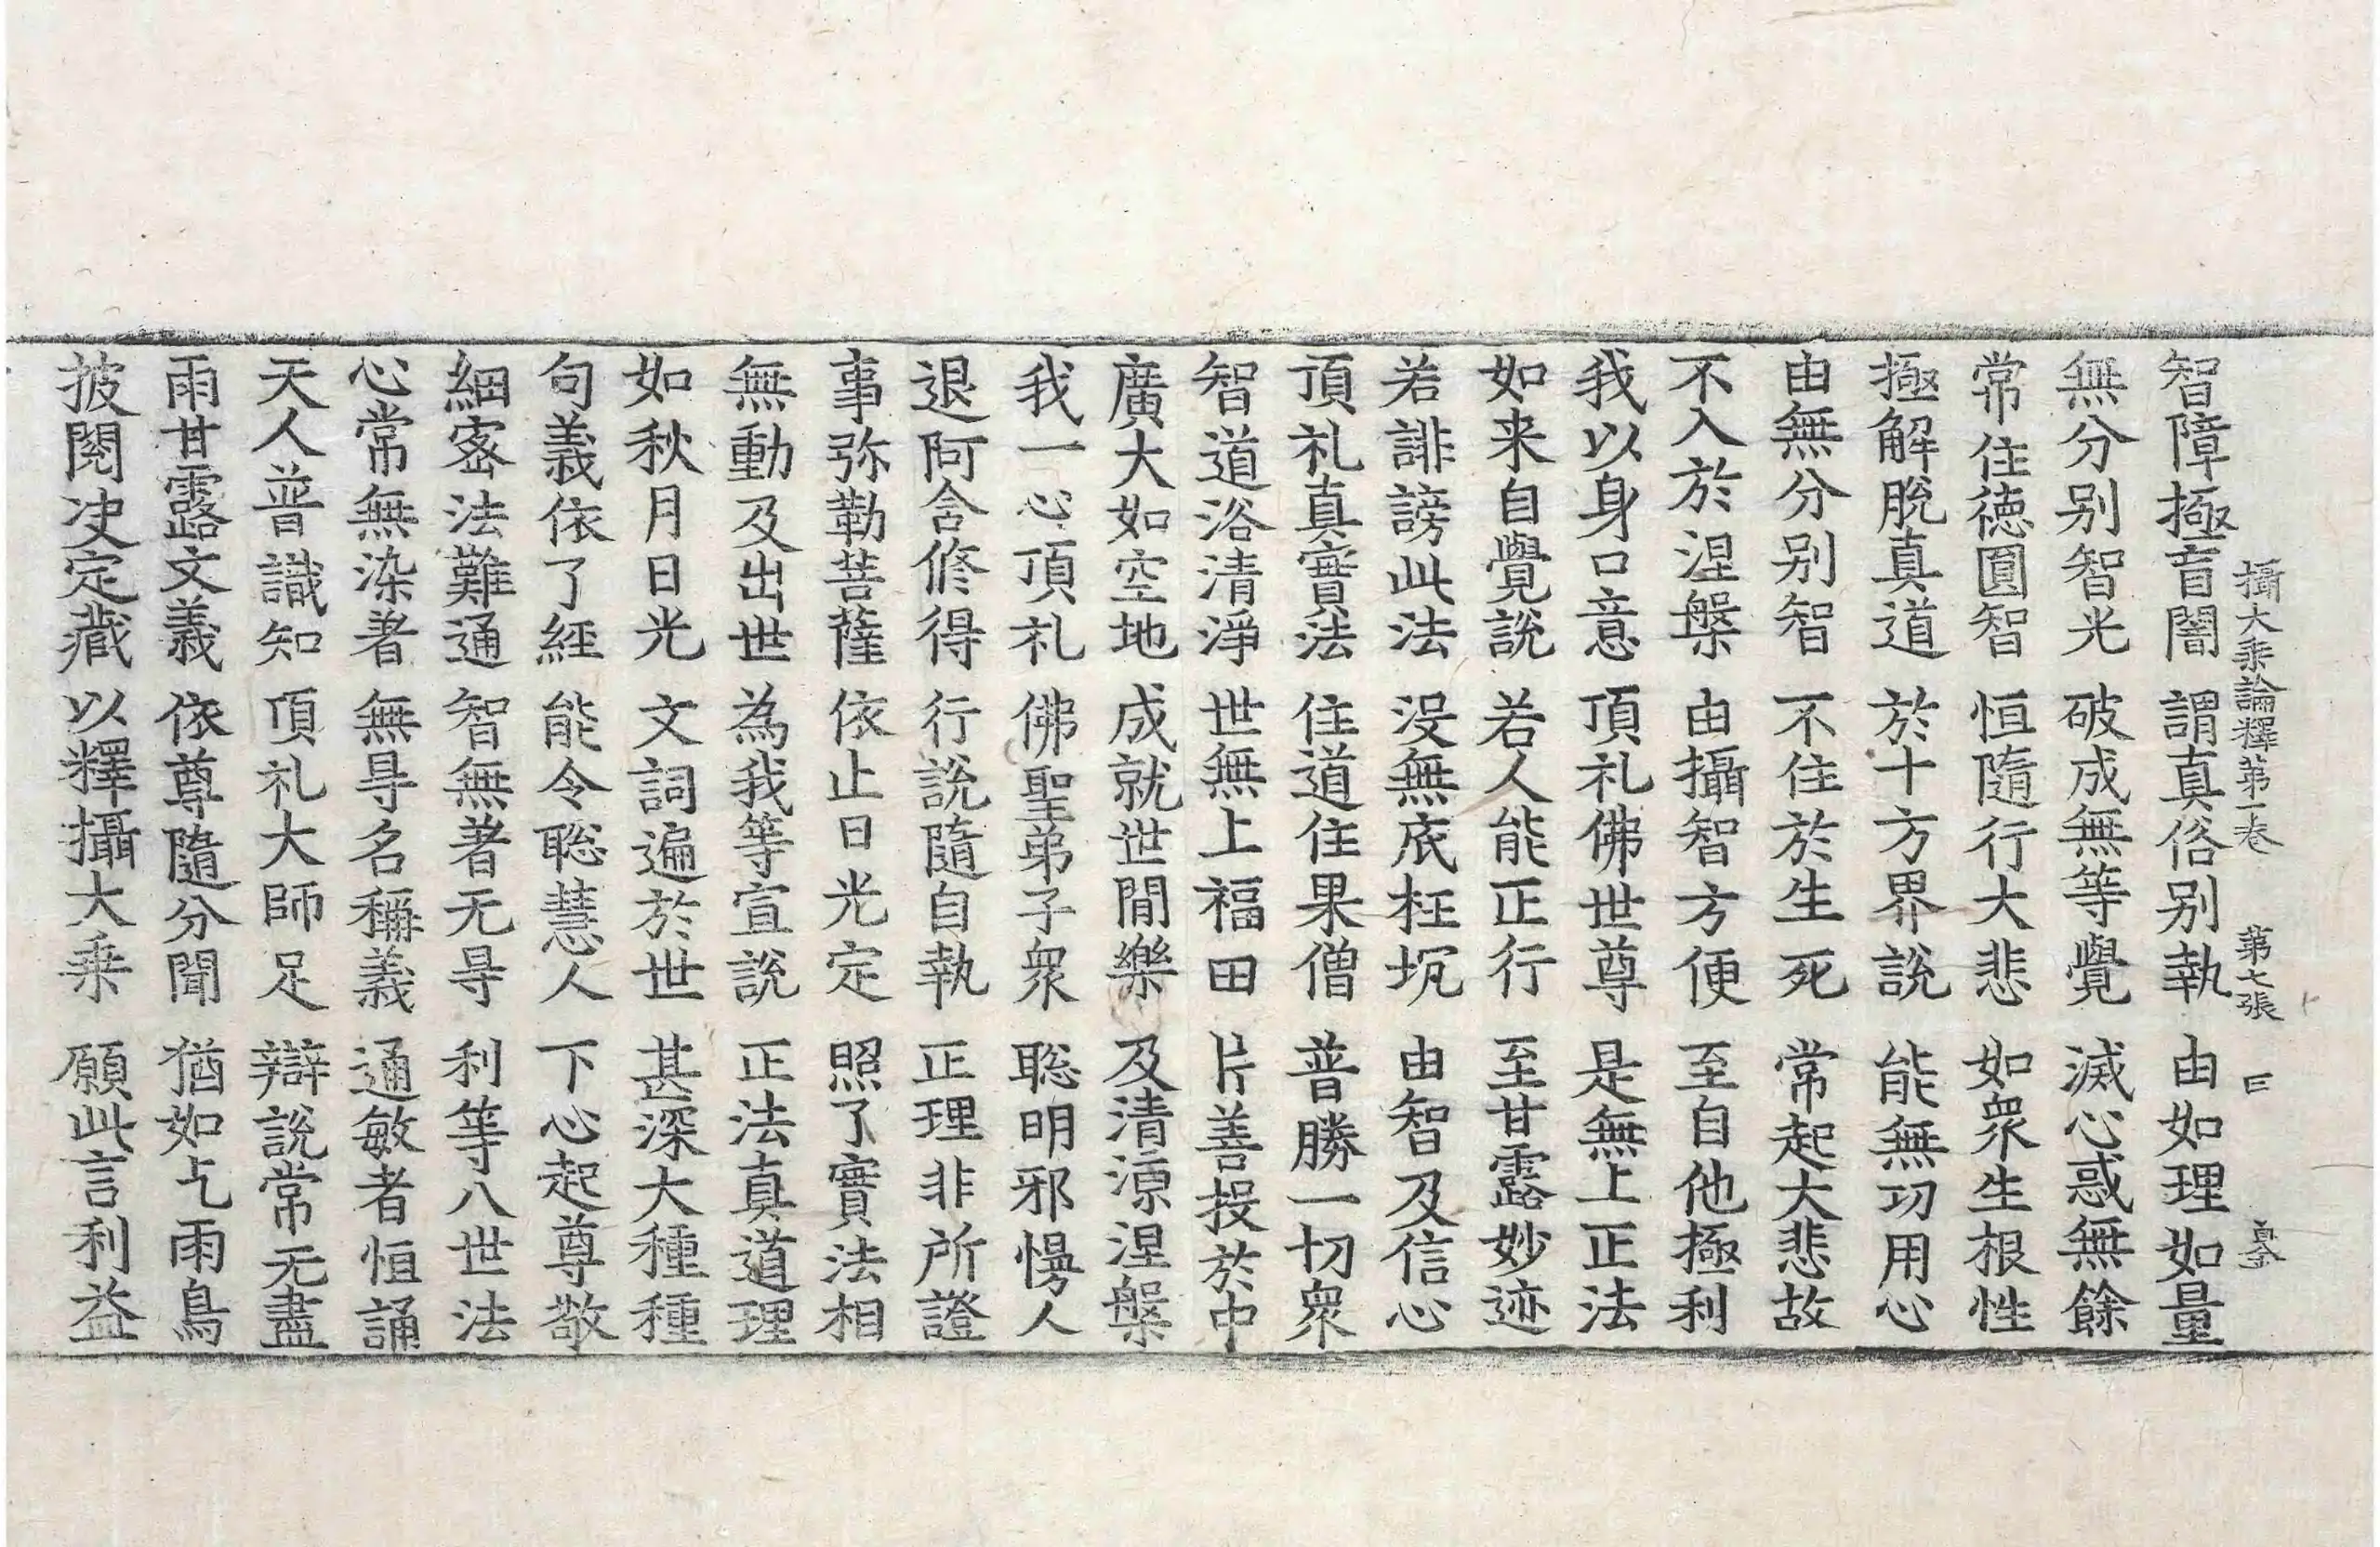 攝大乘論釋第一卷　第七張
智障極盲闇　謂真俗別執　由如理如量
無分別智光　破成無等覺　滅心惑無餘
常住德圓智　恒隨行大悲　如衆生根性
極解脫真道　於十方界說　能無功用心
由無分別智　不住於生死　常起大悲故
不入於涅槃　由攝智方便　至自他極利
我以身口意　頂礼佛世尊　是無上正法
如来自覺說　若人能正行　至甘露妙迹
若誹謗此法　没無底枉坑　由智及信心
頂礼真實法　住道住果僧　普勝一切衆
智道浴清淨　世無上福田　片善投於中
廣大如空地　成就世間樂　及清涼涅槃
我一心頂礼　佛聖弟子衆　聡明邪慢人
退阿含修得　行說隨自執　正理非所證
事弥勒菩薩　依止日光定　照了實法相
無動及出世　為我等宣說　正法真道理
如秋月日光　文詞遍於世　甚深大種種
句義依了經　能令聡慧人　下心起尊敬
細密法難通　智無著无㝵　利等八世法
心常無染著　無㝵名稱義　通敏者恒誦
天人普識知　頂礼大師足　辯說常无盡
雨甘露文義　依尊隨分聞　猶如乞雨鳥
披閱决定藏　以釋攝大乘　願此言利益